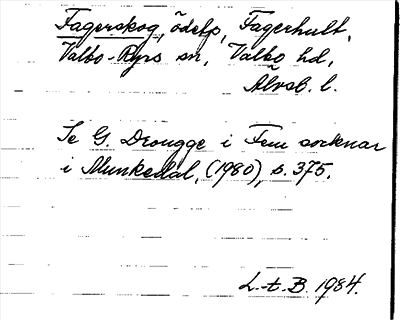 Fagerskog, ödelp, Fagerhult,
Valbo-Ryrs sn, Valbo hd,
Älvsb. l.
Se G. Drougge i Fem socknar
i Munkedal, (1980), s. 375.
L-t-B. 1984.